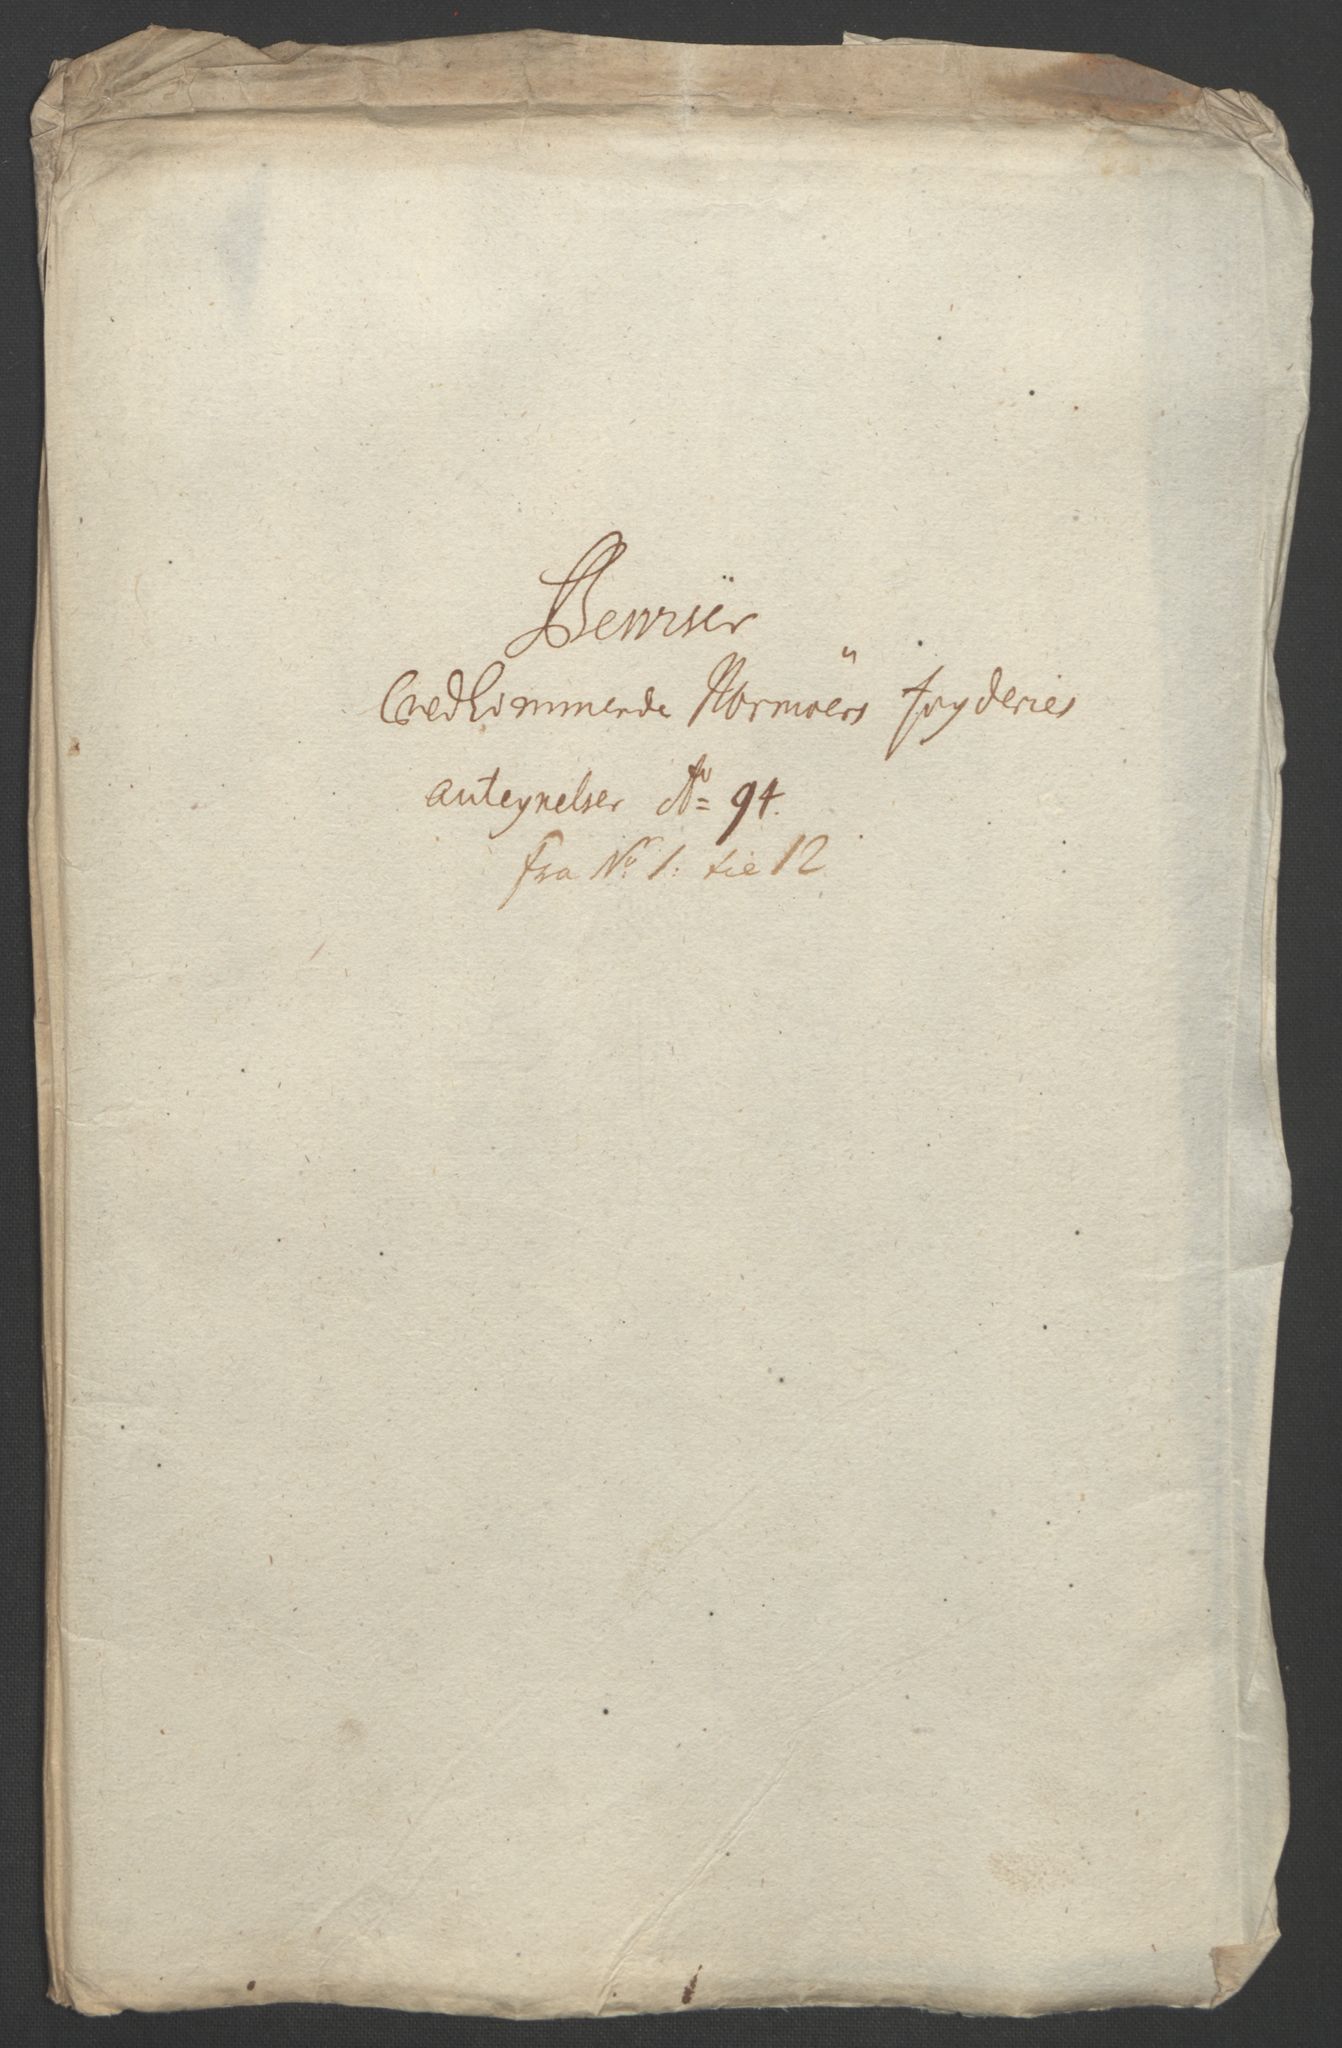 Bewiser
Vedkommende Normøers fogderies
antegnelser Ao 94.
fra No 1. til 12